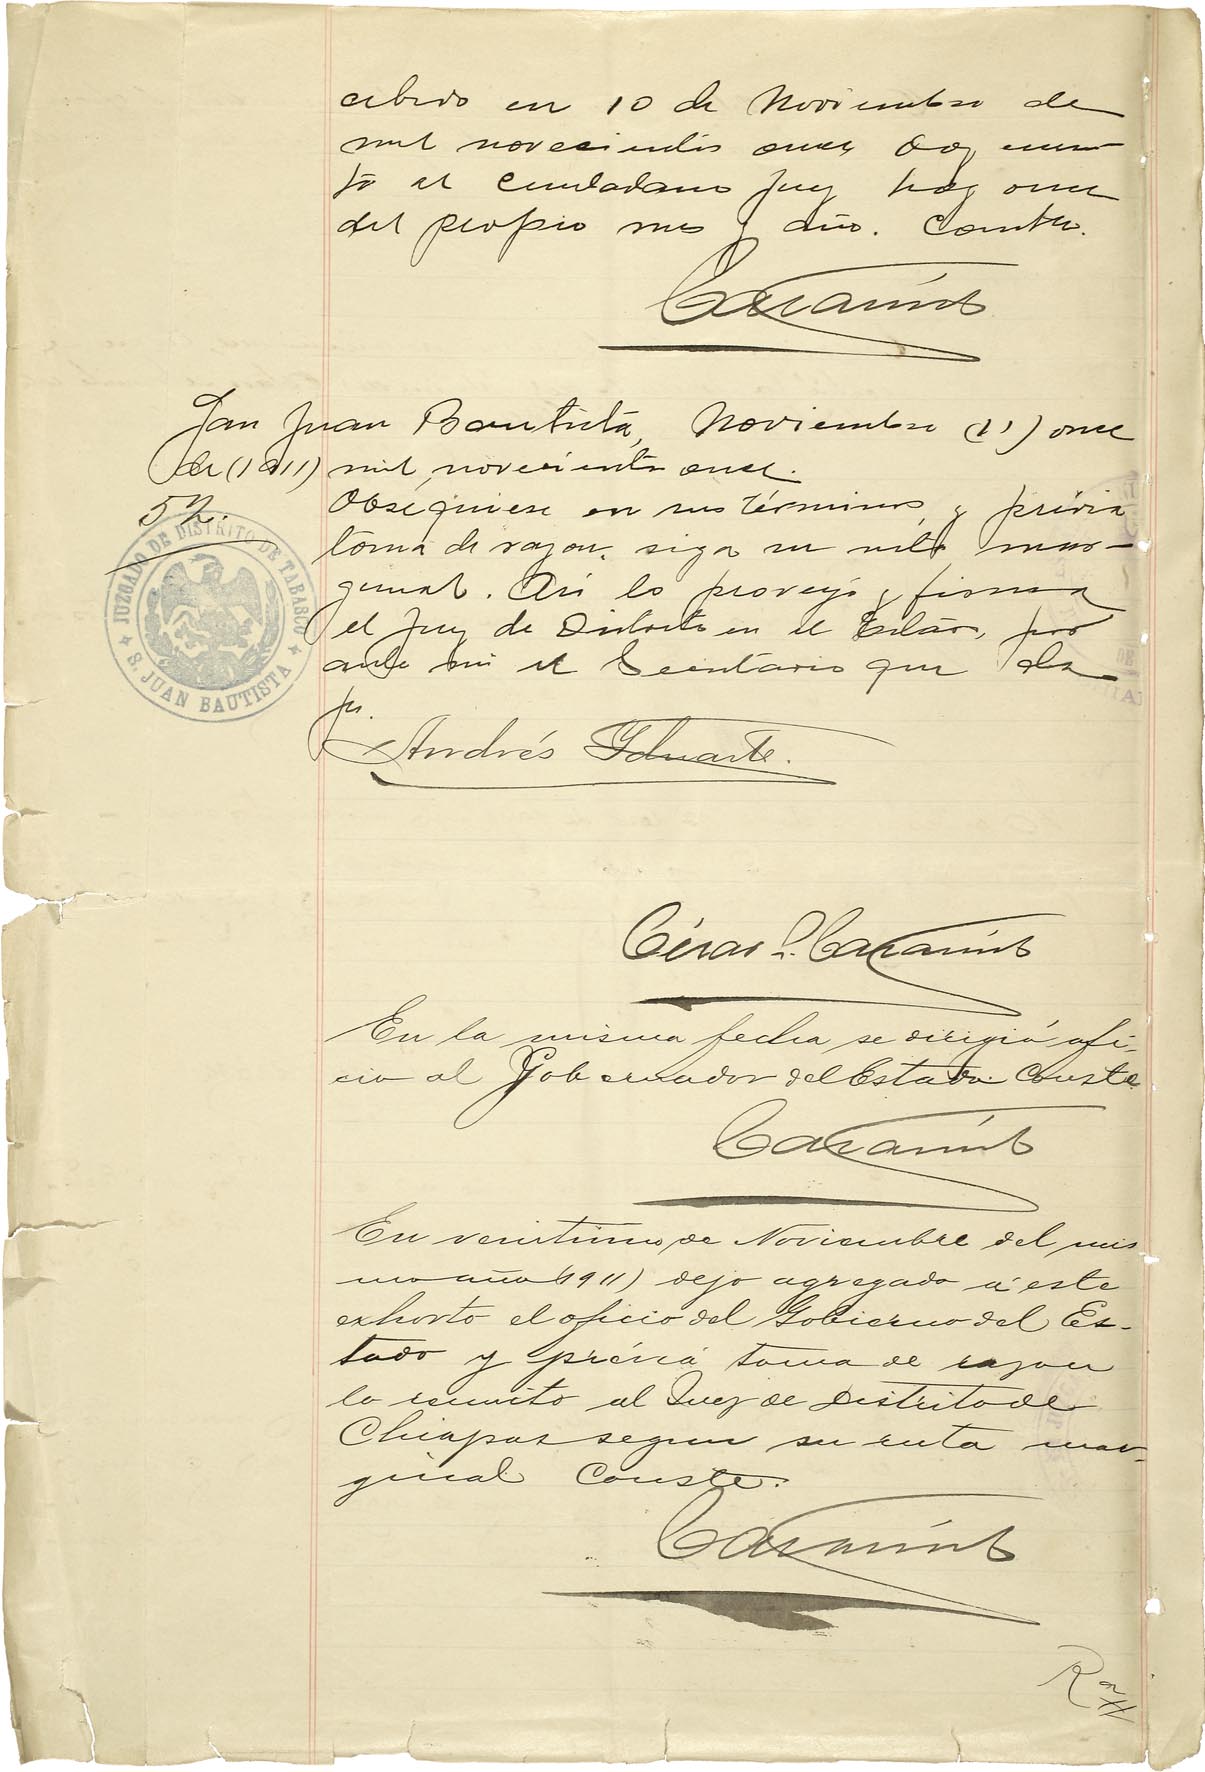 cibido en 10 de Noviembre de
mil novecientos once, doy cuen-
ta al Ciudadano Juez hoy once
del propio mes y año. Conste.
San Juan Bautista, Noviembre (11) once
de (1911) mil novecientos once.
Obséquiese en sus términos, y prévia
toma de razon, siga su ruta mar-
ginal. Así lo proveyó y firma
el Juez de Distrito en el Estado, por
ante mi el Secretario que da
fe.
JUZGADO DE DISTRITO DE TABASCO
S. JUAN BAUTISTA
Andrés Iduarte.
César
En la misma fecha se dirigió ofi-
cio al Gobernador del Estado. Conste
En veintiuno de Noviembre del mis
mo año (1911) dejo agregado á este
exhorto el oficio del Gobierno del Es-
tado y prévia toma de razon
lo remito al Juez de Distrito de
Chiapas segun su ruta mar-
ginal Conste.